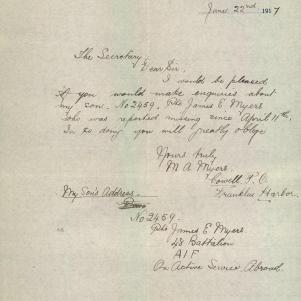 June 22nd 1917
The Secretary,
Dear Sir.
I would be pleased
if you would make enquiries about
my son. No 2459. Pte James E. Myers
who was reported missing since April 11th.
In so doing you will greatly oblige
Yours truly
M A Myers.
Cowell P.O.
Franklin Harbor.
My Son's Address.
No 2459.
Pte James E Myers
48 Battalion
A I F
On Active Service Abroad.